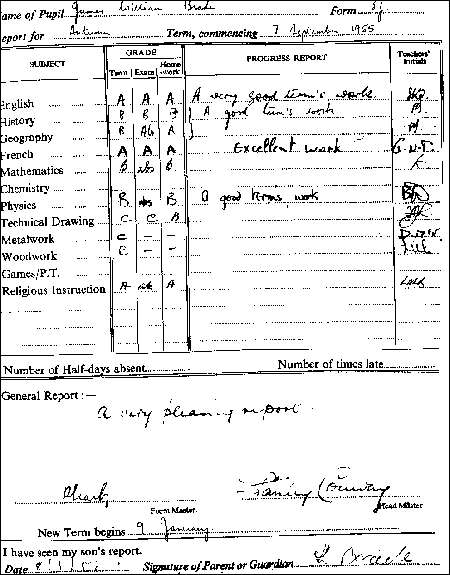 ame of Pupil James William Brade Form
eport for Autumn Term, commencing 7 September 1955
SUBJECT GRADE PROGRESS REPORT Teachers' Initials
Term Exam Home work
English A A A A very good term's work.
History B B A good term's work
Geography B Ab A
French A A A Excellent work G.N.T.
Mathematics B abs B
Chemistry
Physics B abs B A good terms work
Technical Drawing C C B
Metalwork C – –
Woodwork C – –
Games/P.T.
Religious Instruction A A
Number of Half-days absent Number of times late
General Report :—
A very pleasing report.
Form Master. Head Master
New Term begins 9 January
I have seen my son's report.
Date Signature of Parent or Guardian